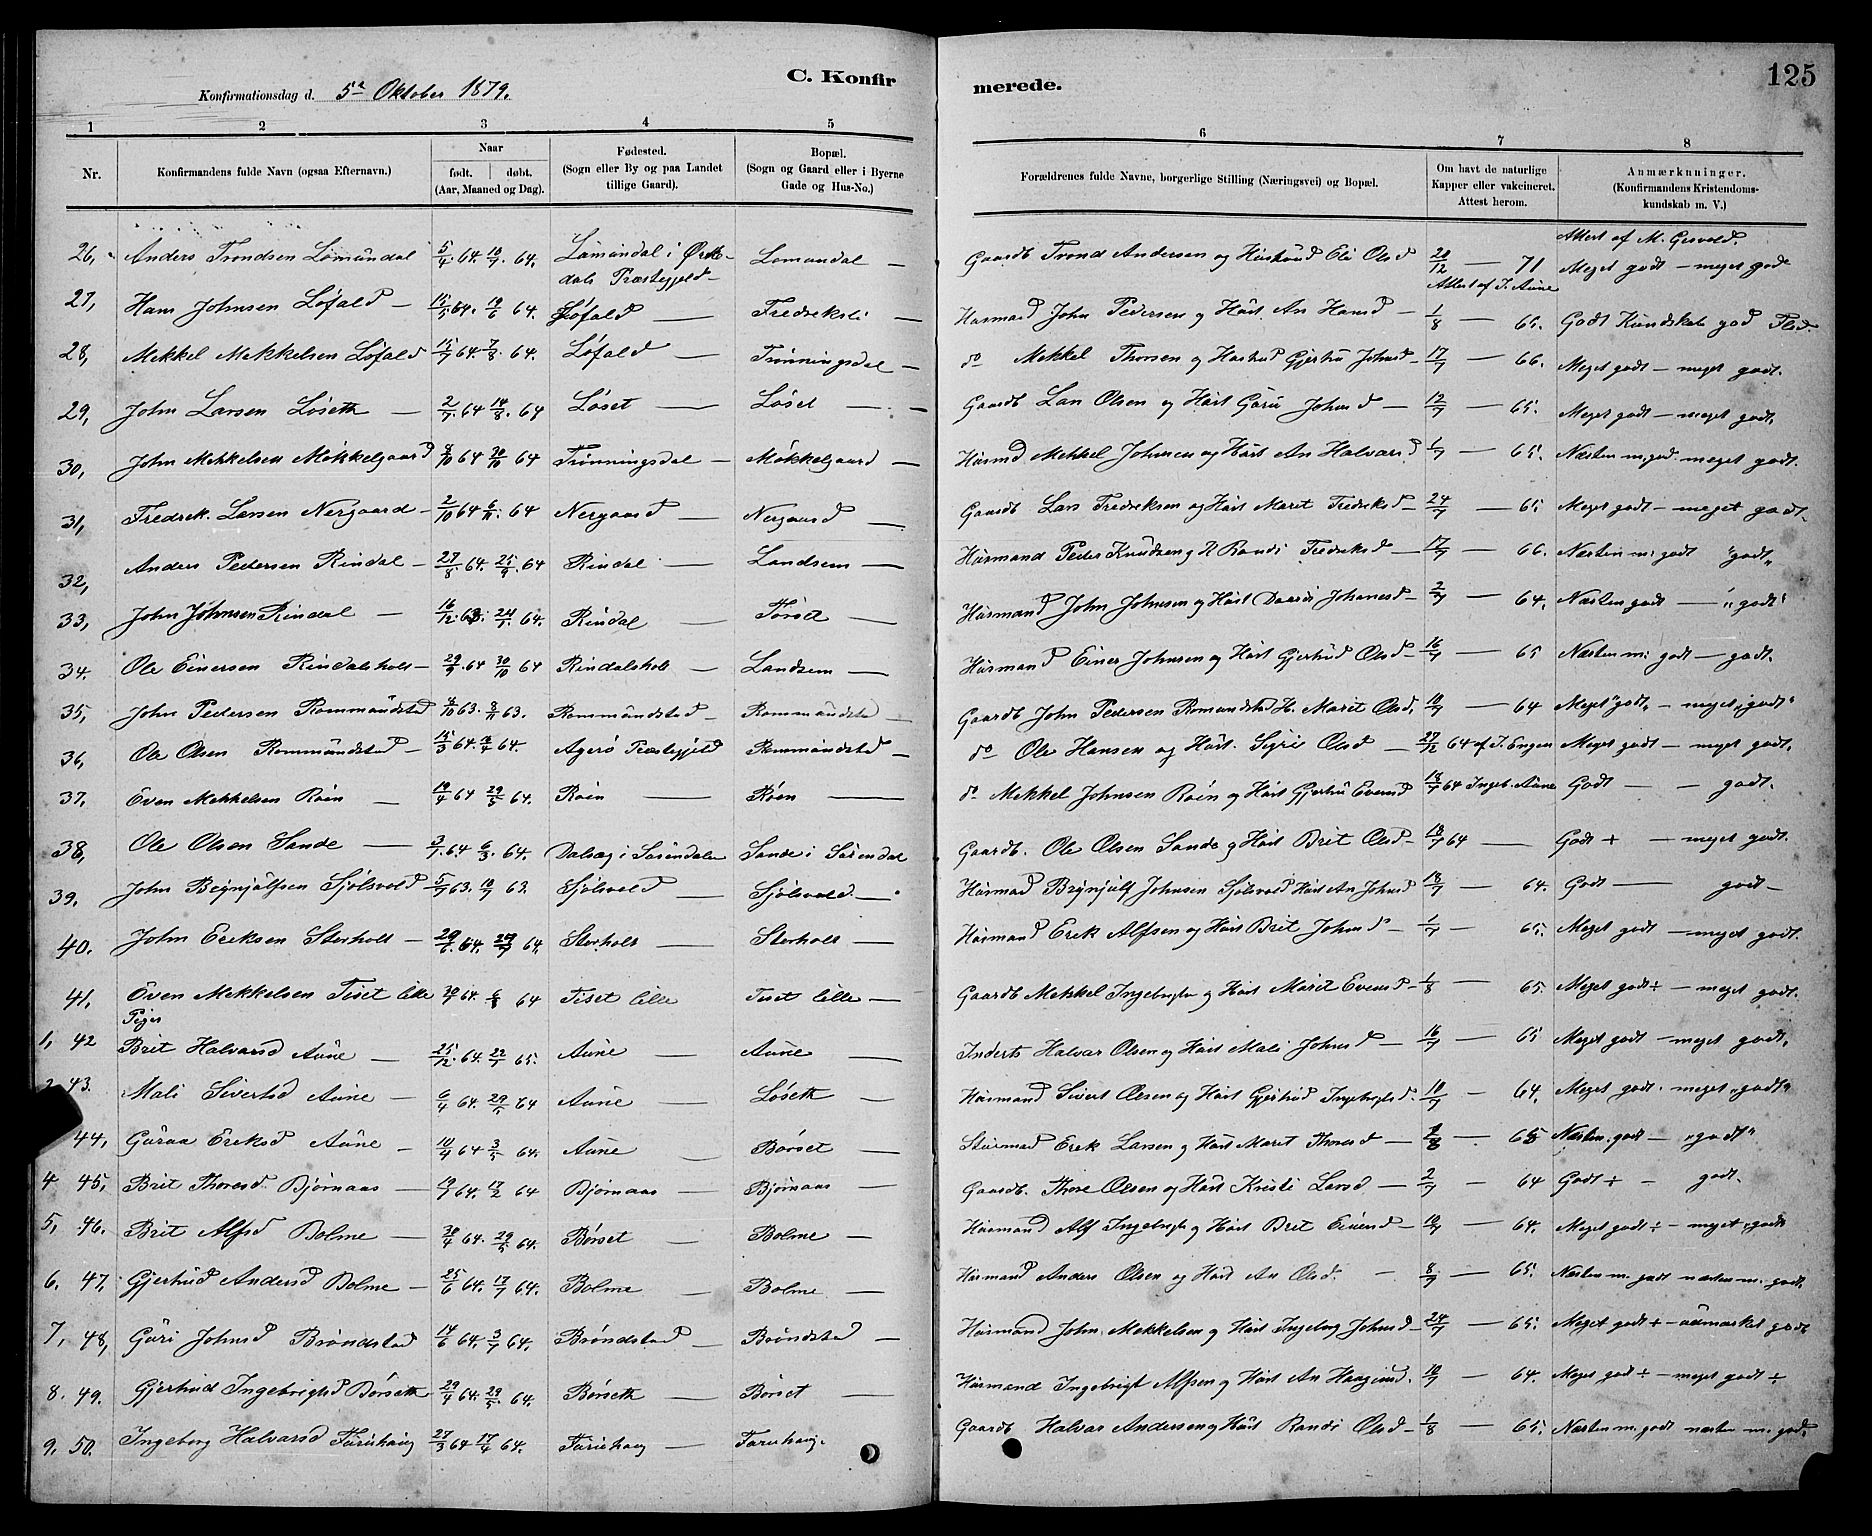 C. Konfir
merede.
125
Konfirmationsdag d. 5te Oktober 1879.
1 2 3 4 5 6 7 8
Nr. Konfirmandens fulde Navn (ogsaa Efternavn.) Naar født. døbt. (Aar, Maaned og Dag). Fødested. (Sogn eller By og paa Landet tillige Gaard). Bopæl. (Sogn og Gaard eller i Byerne Gade og Hus-No.) Forældrenes fulde Navne, borgerlige Stilling (Næringsvei) og Bopæl. Om havt de naturlige Kapper eller vakcineret. Attest herom. Anmærkninger. (Konfirmandens Kristendoms-kundskab m. V.)
26, Anders Trondsen Lomundal 5/4. 64. 10/7. 64. Lomundal i Ørkedals Præstegjeld Lomundal Gaardb Trond Andersen og Hustrud Eli Olsd 20/12 — 71 Attest af M. Gesvold. Meget godt — meget godt
27, Hans Johnsen Løfald 15/5 64. 19/6 64. Løfald Fredreksli Husmand John Pedersen og Hust An Hansd Attest af I. Aune 1/8 — 65. Godt Kundskab god Flid.
28, Mekkel Mekkelsen Løfald 15/7 64. 7/8. 64. Løfald Trønningsdal do Mekkel Thoresen og Hustrud Gjertru Johnsd 17/7 — 66. Meget godt — meget godt.
29, John Larsen Løseth 2/7. 64 14/8. 64 Løset Løset Gaardb Lars Olsen og Hust Guru Johnsd 12/7 — 65. Meget godt — meget godt,
30, John Mekkelsen Møkkelgaard 8/10 64 30/10 64 Trønningsdal Møkkelgaard Husmd Mekkel Johnsen og Hust An Halvarsd 1/7 — 65. Næsten m. god. meget godt.
31, Fredrek. Larsen Nergaard 2/10 64 6/11. 64 Nergaard Nergaard Gaardb Lars Fredreksen og Hust Maret Fredreksd 24/7 — 65 Meget godt — meget godt
32, Anders Pedersen Rindal 27/8. 64. 25/9. 64 Rindal Landsem Husmand Peder Knudsen og H Randi Fredreksd 17/7 — 66. Næsten m: godt "godt"
33, John Johnsen Rindal 16/12. 63. 24/1. 64. Rindal Torset Husmand John Johnsen og Hust Daardi Johnesd 2/7 — 64. Næsten godt — "godt"
34. Ole Einersen Rindalsholt 29/9. 64 30/10 64 Rindalsholt Landsem Husmand Einer Johnsen og Hust Gjertrud Olsd 16/7 — 65 Næsten m: godt — godt.
35, John Pedersen Rommundstad 4/10 63. 8/11 63. Rommundstad Rommundstad Gaardb John Pedersen Romundstad H. Marit Olsd, 10/7 — 64 Meget "godt" — meget "godt"
36, Ole Olsen Rommundstad 15/3 64. 4/4 64. Agerø Præstegjeld Rommundstad do Ole Hansen og Hust. Sigrit Olsd 27/12 64 af I. Engen Meget godt — meget godt,
37, Even Mekkelsen Roen 19/4 64 29/5 64. Roen Roen do Mekkel Johnsen Roen og Hust Gjertru Evensd 18/7 64 Ingeb. Aune Godt — godt.
38, Ole Olsen Sande 3/7. 64 6/3. 64. Dalsæg i Surendalen Sande i Surendal Gaardb. Ole Olsen Sande og Hust Brit Olsd 18/7 64 Godt + — meget godt.
39. John Begnjulfsen Sjølsvold 5/7 63. 10/7 63. Sjølsvold Sjølsvold Husmand Brynjulf Johnsen Sjølsvold Hust An Johnsd 18/7 — 64. Godt — godt
40. John Eriksen Storholt 20/6. 64. 17/7 64. Storholt Storholt Husmand Erek Alfsen og Hust Brit Johnsd 1/7 — 65. Meget godt — meget godt.
41, Even Mekkelsen Tiset lille 30/7 64. 6/8 64 Tiset lille Tiset lille Gaardb Mekkel Ingebregtn og Hust Marit Evensd 1/8 — 65. Meget godt ÷ — meget godt.
Piger
1, 42 Brit Halvarsd Aune 25/12. 64. 22/1 65. Aune Aune Inderst Halvar Olsen og Hust Mali Johnsd 16/7 — 65 Meget godt — meget godt,
2. 43. Mali Sivertsd Aune 6/4 64. 29/5 64 Aune Løseth Husmand Sivert Olesen og Hust Gjertrud Ingebrigtsd. 10/7 — 64. Meget godt. meget "godt"
44, Guraa Ereksd Aune 10/4 64 3/5 64. Aune Børset Stuemand Erek Larsen og Hust Maret Thoresd 7/8 — 65 Næsten. godt — "godt"
4 45, Brit Thoresd. Bjørnaas 19/7 64. 17/2 64 Bjørnaas Bjørnaas Gaardb. Thore Olsen og Hust Kristi Larsd 2/7 — 64 Godt + — godt.
5, 46. Brit Alfsd Bolme 30/4 64. 29/5 64. Børset Bolme Husmand Alf Ingebrigtn og Hust Brit Einersd 10/7 — 64. Meget godt ÷ — meget "godt
6, 47. Gjertrud Andersd Bolme 25/6 64. 17/7 64. Bolme Bolme Husmand Anders Olsen og Hust An Olsd. 8/7 — 65. Næsten m. godt næsten m. godt,
7, 48, Guri Johnsd Brøndstad 14/6 64. 3/7 64. Brøndstad Brøndstad Husmand John Mekkelsen og Hust Ingeborg Johnsd 24/7 — 65. Meget godt + — udmærket godt
8. 49. Gjertrud Ingebrigtsd Børseth 29/4 64. 29/5. 64. Børseth Børset Husmand Ingebrigt Alfsen og Hust An Haagensd. 10/7 — 64. Meget god ÷ — meget godt ÷
9, 50. Ingeborg Halvarsd Furuhaug 27/3 64 17/4 64. Furuhaug Furuhaug. Gaardb Halvar Andersen og Hust Randi Olsd 1/8 — 65. Næsten m. godt næsten m. godt.